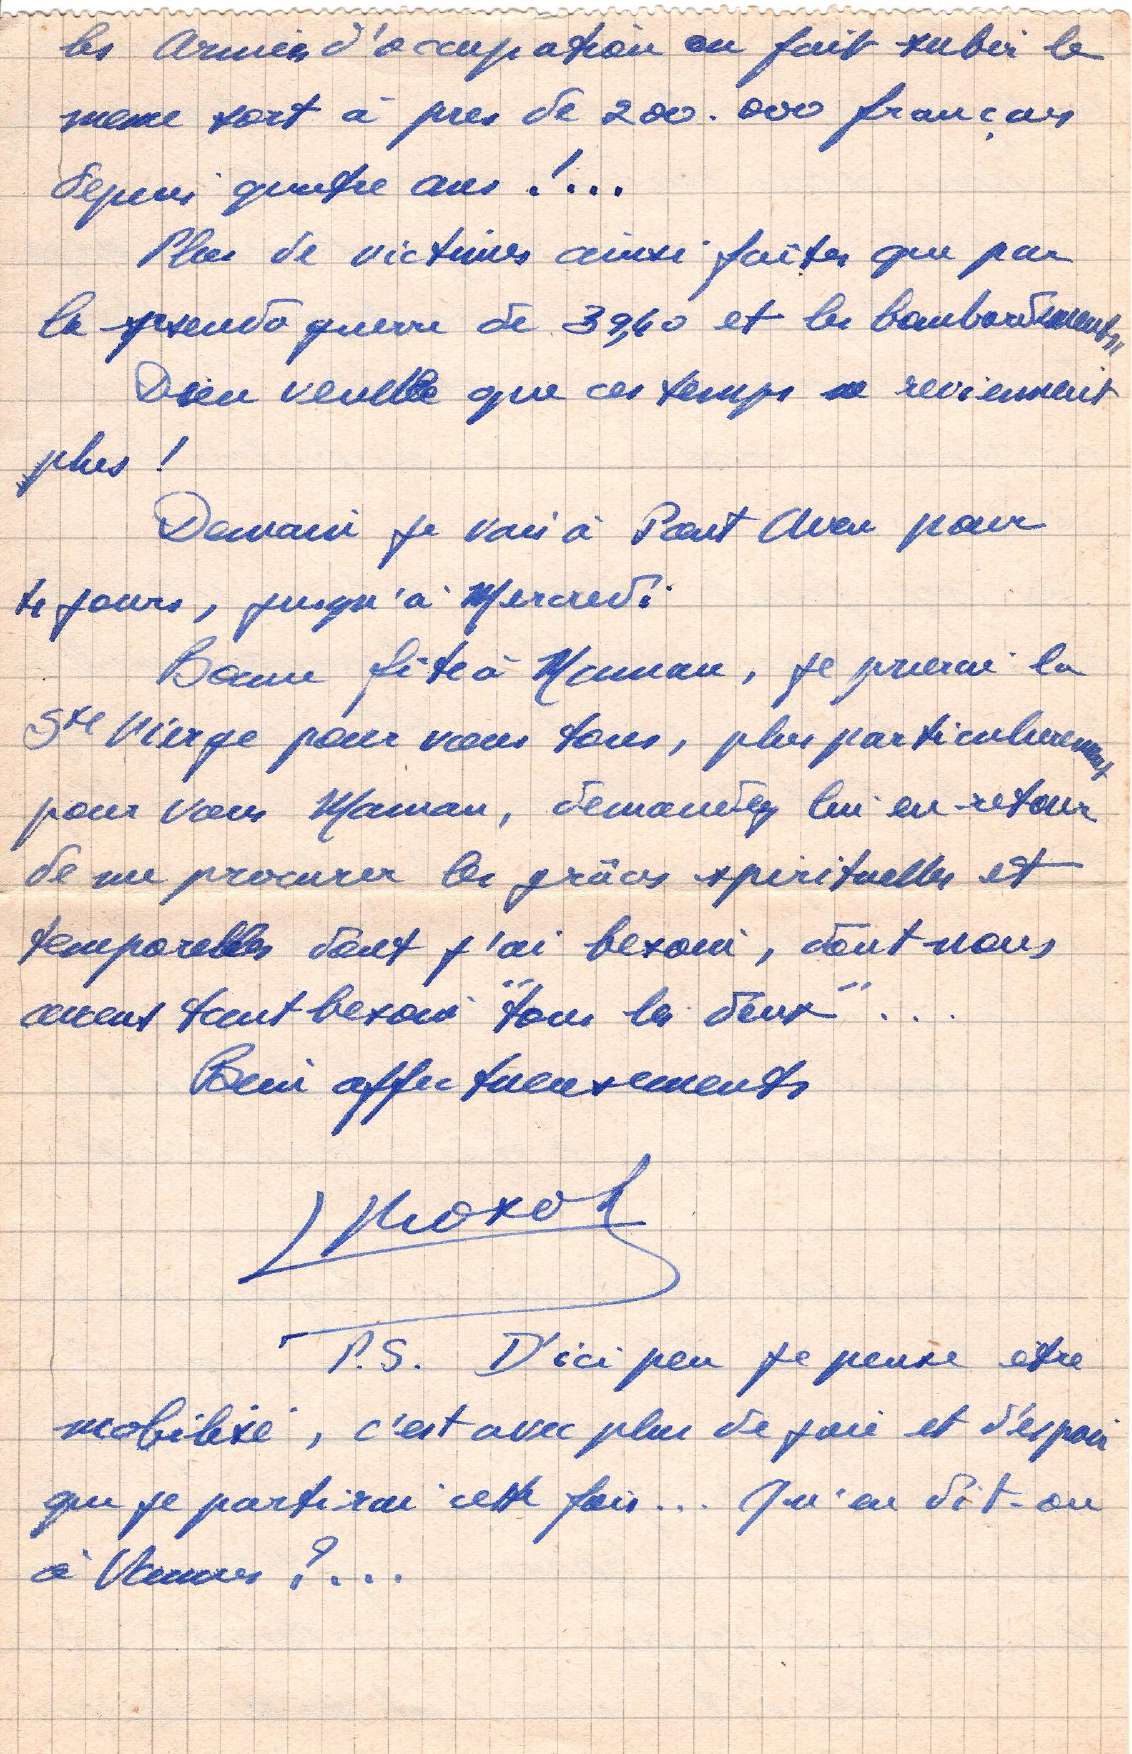 les Armées d'occupation on fait subir le
meme sort à pres de 200.000 français
depuis quatre ans !...
Plus de victimes ainsi faites que par
la pseudo guerre de 39,40 et les bombardements
Dieu veuille que ces temps ne reviennent
plus !
Demain je vais à Pont Aven pour
4 jours, jusqu'à Mercredi
Bonne fête à Maman, je prierai la
Ste Vierge pour vous tous, plus particulierement
pour vous Maman, demandez lui en retour
de me procurer les grâces spirituelles et
temporelles dont j'ai besoin, dont nous
avons tant besoin "tous les deux"...
Bien affectueusements
P.S. D'ici peu je pense etre
mobilisé, c'est avec plus de joie et d'espoir
que je partirai cette fois... Qu'en dit-on
à Vannes ?...